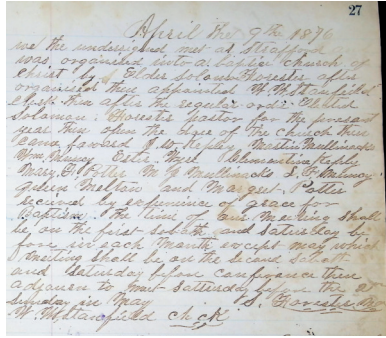 27
April the 9th 1876
we the undersigned met at Strafford
was organised into a baptis church of
Christ by Elder Solomon Forester after
organised then appointed W. M. Stanfield
Clerk then after the regular order Elected
Solaman Forester pastor for the present
year then open the dore of the church then
Came forward J. W. Repley Martin Mullinack
Wm Muncy Ester Clementine Reply
Mary E Potter M. J. Mullinacks S. F. Muncy
green Melton and Marget Potter
received by experience of grace for
Baptism. The time of our meeting Shall
be on the first sobath and Saturday be
fore in each Month except may which
meeting Shall be on the Second
and Saturday before conferance then
adjourn to meet satterday before the 2d
Sunday in May S. Forester Mo
W. M. Stancefield ch ck